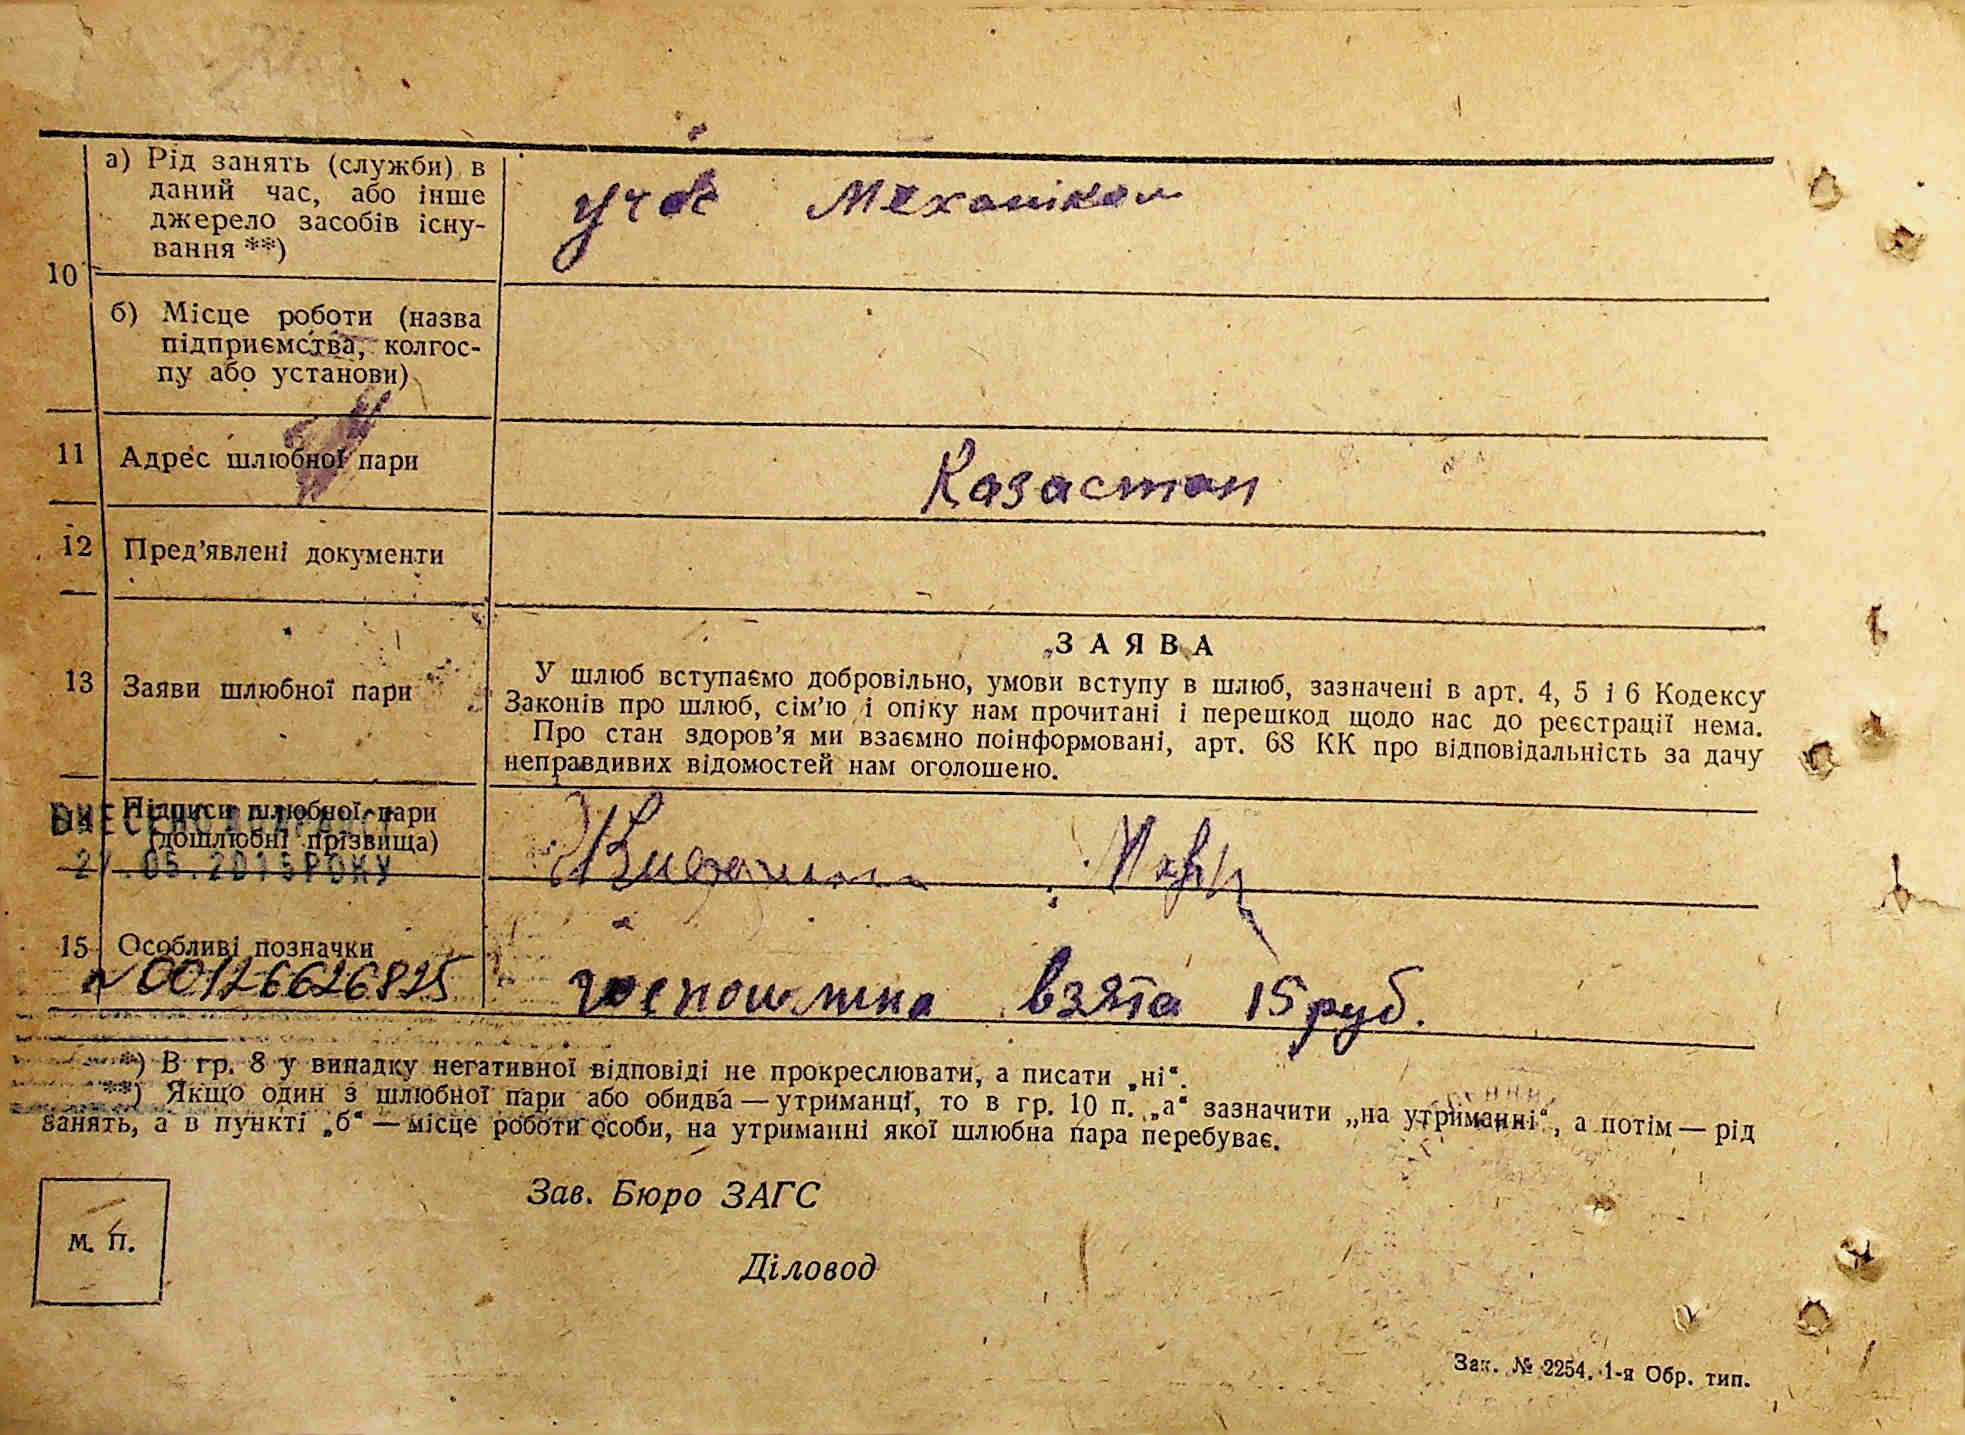 10
а) Рід занять (служби) в
даний час, або інше
джерело засобів існу-
вання **)
Механіком
б) Місце роботи (назва
підприємства, колгос-
пу або установи)
11 Адрес шлюбної пари Казастан
12 Пред'явлені документи
13 Заяви шлюбної пари
ЗАЯВА
У шлюб вступаємо добровільно, умови вступу в шлюб, зазначені в арт. 4, 5 і 6 Кодексу
Законів про шлюб, сім'ю і опіку нам прочитані і перешкод щодо нас до реєстрації нема.
Про стан здоров'я ми взаємно поінформовані, арт. 68 КК про відповідальність за дачу
неправдивих відомостей нам оголошено.
Підписи шлюбної пари
(дошлюбні прізвища)
.05.2015РОКУ
15 Особливі позначки
№00126626825
взята 15 руб.
*) В гр. 8 у випадку негативної відповіді не прокреслювати, а писати „ні“.
**) Якщо один з шлюбної пари або обидва — утриманці, то в гр. 10 п. „а“ зазначити „на утриманні“, а потім — рід
занять, а в пункті „б“ — місце роботи особи, на утриманні якої шлюбна пара перебуває.
Зав. Бюро ЗАГС
м. п.
Діловод
Зак. № 2254. 1-я Обр. тип.